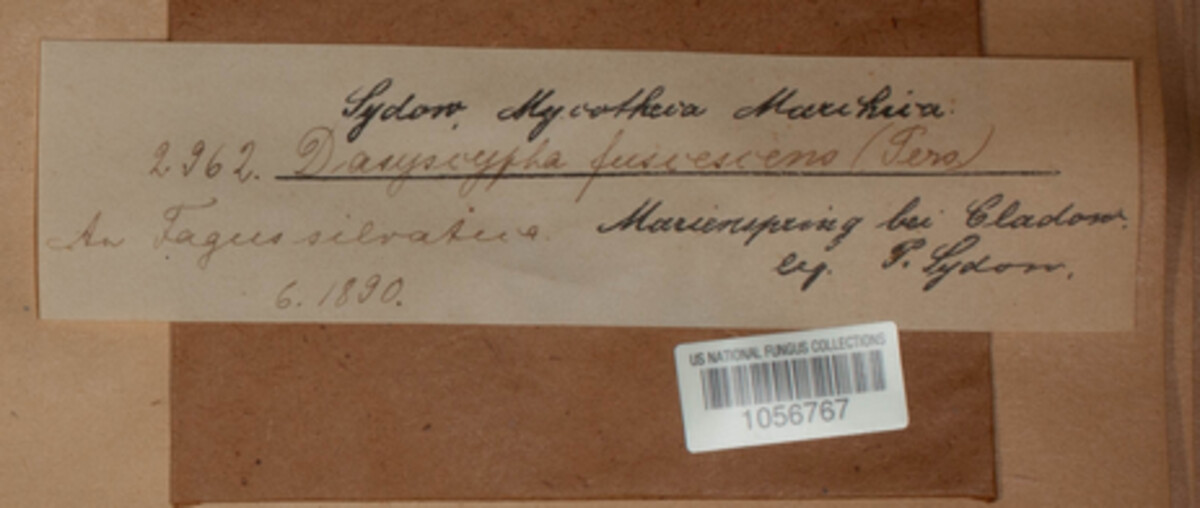 Sydow, Mycotheca Marchica.
2962. Dasyscypha fuscescens (Pers)
An Fagus silvatica. Marienspring bei Cladow.
leg. P. Sydow.
6. 1890.
US NATIONAL FUNGUS COLLECTIONS
1056767